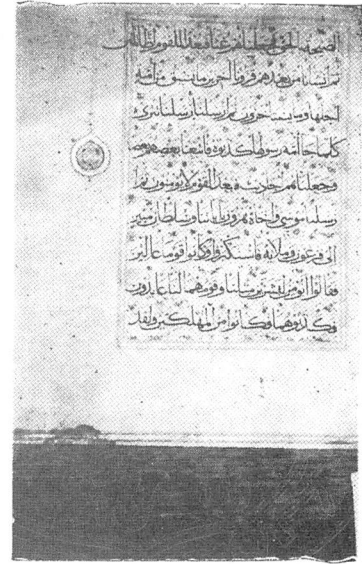 الصيحة بالحق فجعلناهم غثاء فبعدا للقوم الظالمين
ثم أنشأنا من بعدهم قرونا آخرين ما تسبق من أمة
أجلها وما يستأخرون ثم أرسلنا رسلنا تترى
كلما جاء أمة رسولها كذبوه فأتبعنا بعضهم بعضا
وجعلناهم أحاديث فبعدا لقوم لا يؤمنون ثم أ
رسلنا موسى وأخاه هرون بآياتنا وسلطان مبين
إلى فرعون وملائه فاستكبروا وكانوا قوما عالين
فقالوا أنؤمن لبشرين مثلنا وقومهما لنا عابدون
فكذبوهما فكانوا من المهلكين ولقد